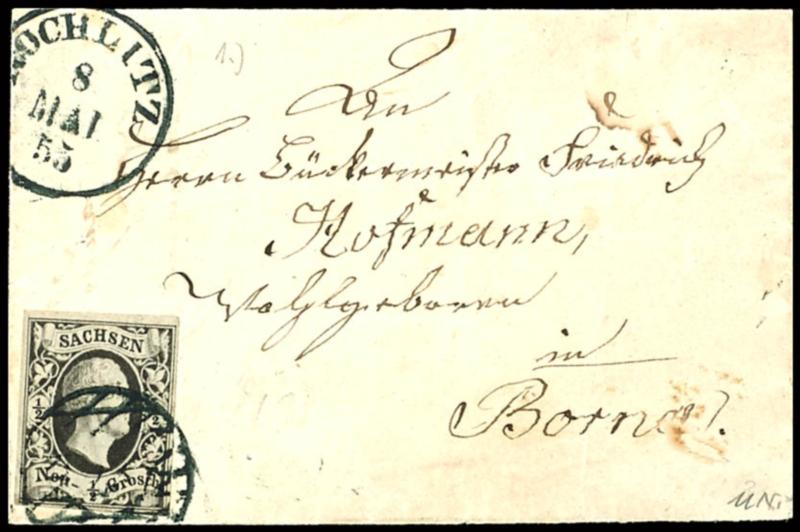 ROCHLITZ
8
MAI
55
1.)
An
Herrn Bäckermeister Friedrich
Hofmann,
Wohlgeboren
in
Borna.
SACHSEN
1/2
Neu- 1/2 Grosch.